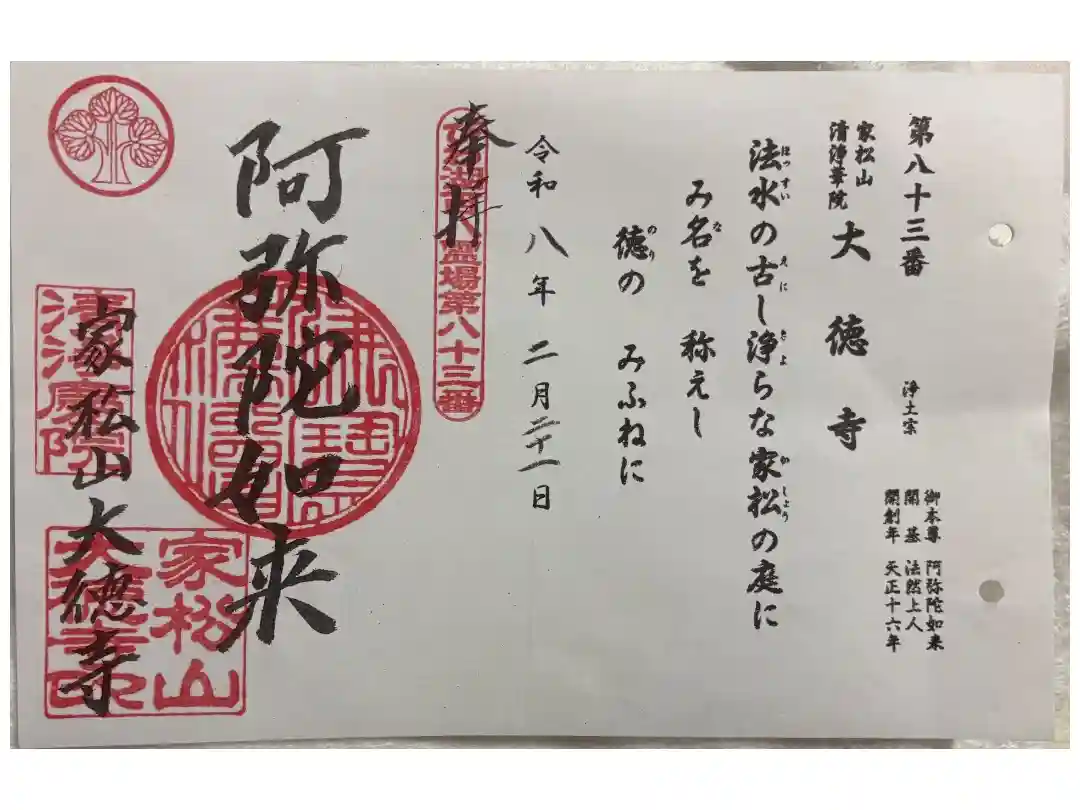 第八十三番 浄土宗
御本尊 阿弥陀如来
開基 法然上人
開創年 天正十六年
家松山
清浄華院
大徳寺
法水の古し浄らな家松の庭に
ほっすい えに きよ か しょう
み名を 称えし
な
徳の みふねに
のり
令和八年二月二十一日
奉拝
霊場第八十三番
阿弥陀如来
家松山大徳寺
家松山